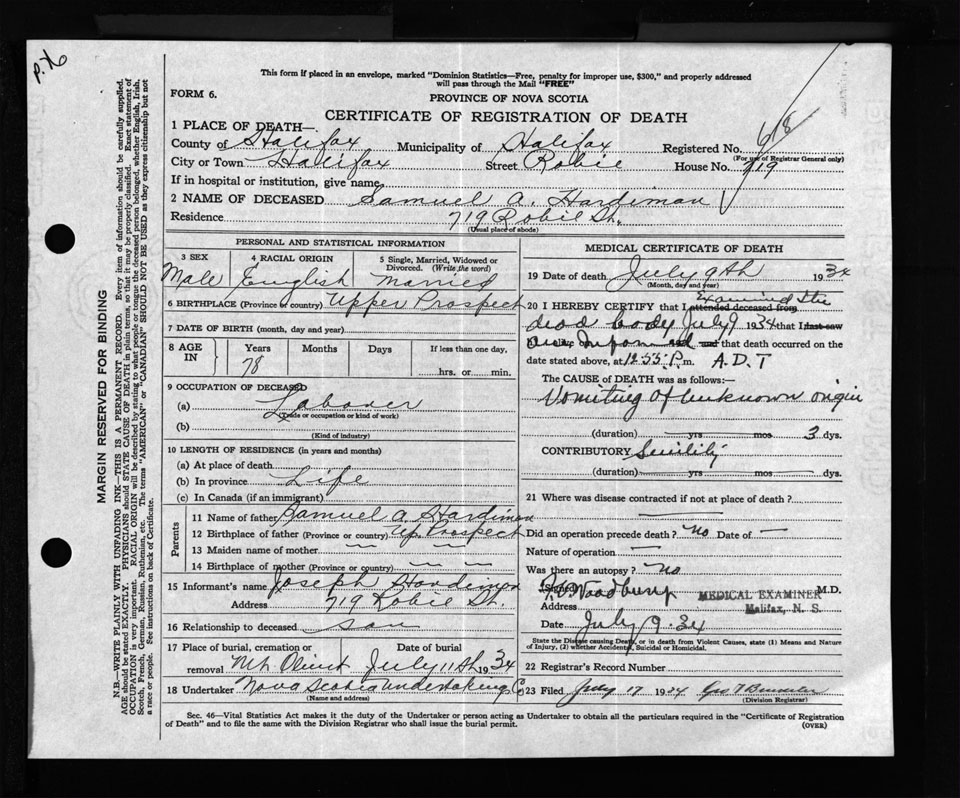 p.x6
This form if placed in an envelope, marked "Dominion Statistics—Free, penalty for improper use, $300," and properly addressed
will pass through the Mail "FREE"
FORM 6.
PROVINCE OF NOVA SCOTIA
CERTIFICATE OF REGISTRATION OF DEATH
1 PLACE OF DEATH—
County of Halifax Municipality of Halifax Registered No. 618
(For use of Registrar General only)
City or Town Halifax Street Robie House No. 719
If in hospital or institution, give name
2 NAME OF DECEASED Samuel A. Hardiman
Residence 719 Robie St.
(Usual place of abode)
PERSONAL AND STATISTICAL INFORMATION
3 SEX 4 RACIAL ORIGIN 5 Single, Married, Widowed or Divorced. (Write the word)
Male English Married
6 BIRTHPLACE (Province or country) Upper Prospect
7 DATE OF BIRTH (month, day and year)
8 AGE IN Years Months Days If less than one day,
78 hrs. or min.
9 OCCUPATION OF DECEASED
(a) Laborer
(Trade or occupation or kind of work)
(b)
(Kind of industry)
10 LENGTH OF RESIDENCE (in years and months)
(a) At place of death
(b) In province Life
(c) In Canada (if an immigrant)
Parents
11 Name of father Samuel A Hardiman
12 Birthplace of father (Province or country) Up. Prospect
13 Maiden name of mother — —
14 Birthplace of mother (Province or country) — —
15 Informant's name Joseph Hardiman
Address 719 Robie St.
16 Relationship to deceased son
17 Place of burial, cremation or removal Date of burial
Mt Olivet July 11th 1934
18 Undertaker Nova Scotia Undertaking Co
(Name and address)
MEDICAL CERTIFICATE OF DEATH
19 Date of death July 9th 1934
(Month, day and year)
20 I HEREBY CERTIFY that I attended deceased from Examined the
dead body July 9 1934 that I last saw
and that death occurred on the
date stated above, at 12.55 P.m. A.D.T
The CAUSE of DEATH was as follows:—
Vomiting of unknown origin
(duration) yrs mos 3 dys.
CONTRIBUTORY Senility
(duration) yrs mos dys.
21 Where was disease contracted if not at place of death?
—
Did an operation precede death? no Date of —
Nature of operation —
Was there an autopsy? No
(Signed) Woodbury MEDICAL EXAMINER M.D.
Address Halifax, N. S.
July 9. 34
State the Disease causing Death, or in death from Violent Causes, state (1) Means and Nature
of Injury, (2) whether Accidental, Suicidal or Homicidal.
22 Registrar's Record Number
23 Filed July 17 1934 Geo T
(Division Registrar)
Sec. 46—Vital Statistics Act makes it the duty of the Undertaker or person acting as Undertaker to obtain all the particulars required in the "Certificate of Registration
of Death" and to file the same with the Division Registrar who shall issue the burial permit. (OVER)
MARGIN RESERVED FOR BINDING
N.B.—WRITE PLAINLY WITH UNFADING INK—THIS IS A PERMANENT RECORD. Every item of information should be carefully supplied.
AGE should be stated EXACTLY. PHYSICIANS should STATE CAUSE OF DEATH in plain terms, so that it may be properly classified. Exact statement of
OCCUPATION is very important. RACIAL ORIGIN will be described by stating to what people or tongue the deceased person belonged, whether English, Irish,
Scotch, French, German, Russian, Ruthenian, etc. The terms "AMERICAN" or "CANADIAN" SHOULD NOT BE USED as they express citizenship but not
a race or people. See instructions on back of Certificate.